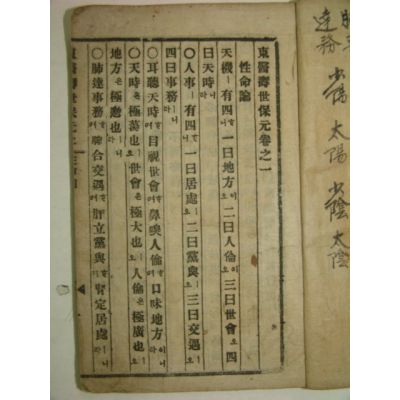 達務 少陽 太陽 少陰 太陰
東醫壽世保元卷之一
性命論
天機ㅣ有四ᄒᆞ니一曰地方이오二曰人倫이오三曰世會오四
曰天時ㅣ니라
○人事ㅣ有四ᄒᆞ니一曰居處ㅣ오二曰黨與ㅣ오三曰交遇ㅣ오
四曰事務ㅣ니라
○耳聽天時ᄒᆞ며目視世會ᄒᆞ며鼻嗅人倫ᄒᆞ며口味地方이니라
○天時은極蕩也ㅣ오世會은極大也ㅣ오人倫은極廣也ㅣ오
地方은極邈也ㅣ니라
○肺達事務ᄒᆞ며脾合交遇ᄒᆞ며肝立黨與ᄒᆞ며腎定居處ㅣ니라